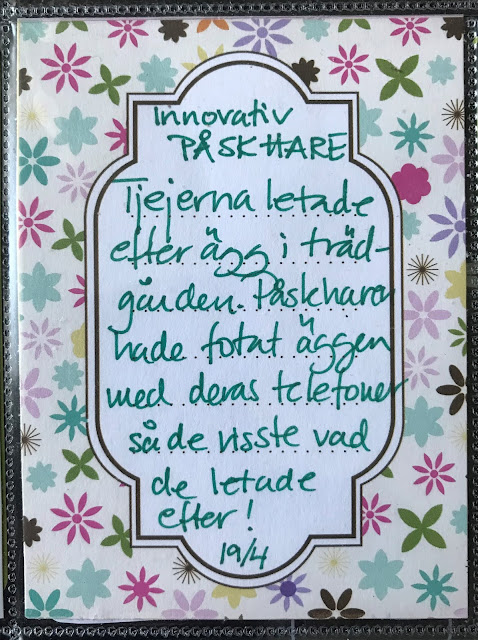 Innovativ
PÅSKHARE
Tjejerna letade
efter ägg i träd-
gården. Påskharen
hade fotat äggen
med deras telefoner
så de visste vad
de letade
efter!
19/4